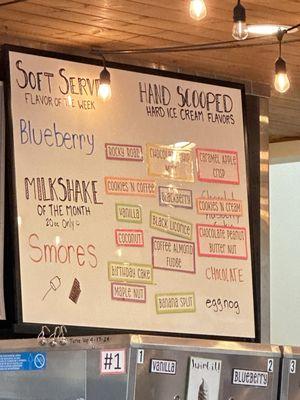 SOFT SERVE
FLAVOR OF THE WEEK
Blueberry
MILKSHAKE
OF THE MONTH
20oz Only
Smores
HAND SCOOPED
HARD ICE CREAM FLAVORS
ROCKY ROAD
CARAMEL APPLE
CRISP
COOKIES N COFFEE
BLACKBERRY
COOKIES N CREAM
vanilla
BLACK LICORICE
COCONUT
COFFEE ALMOND
FUDGE
CHOCOLATE PEANUT
BUTTER NUT
birthday cake
CHOCOLATE
MAPLE NUT
BANANA SPLIT
eggnog
#1
1
vanilla
Twirl
BLUEBERRY
2
3